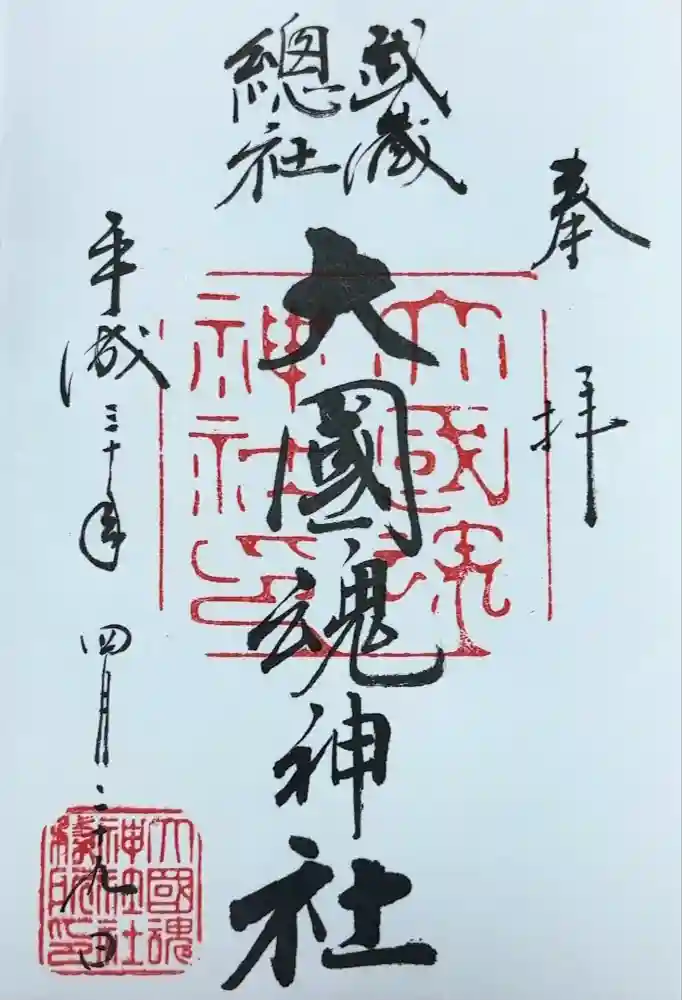 奉拝
武蔵
總社
大國魂神社
平成三十年 四月二十九日
大國魂
神社印
大國魂
神社社
務所印